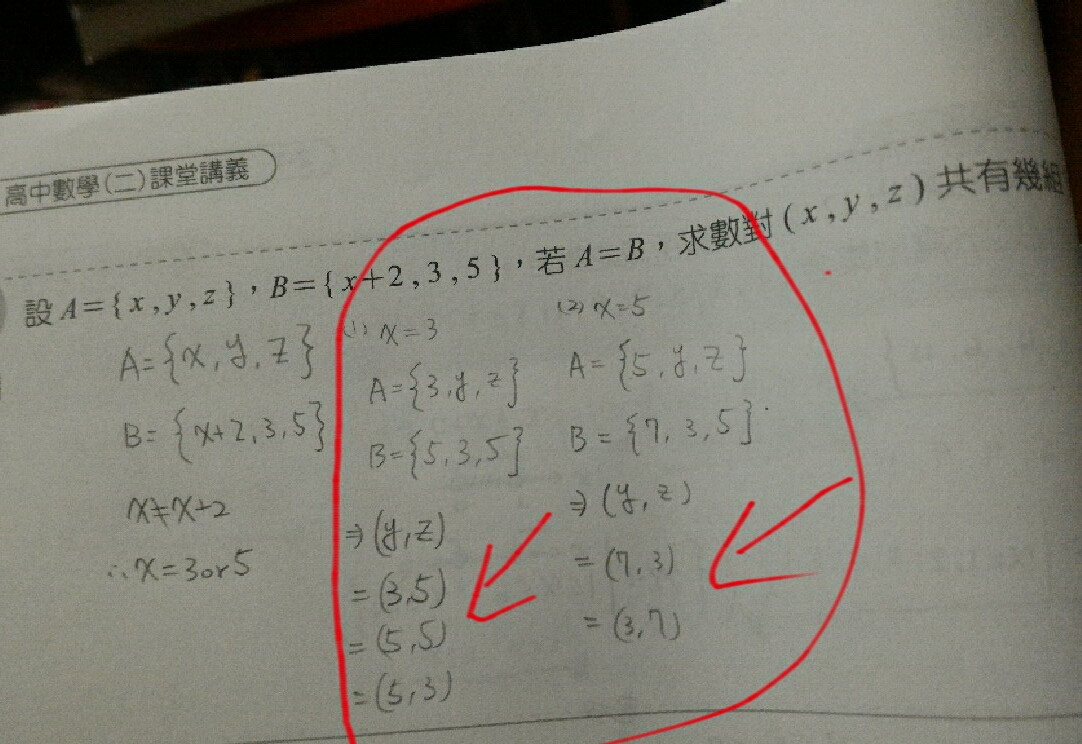 高中數學(二)課堂講義
設A={x,y,z},B={x+2,3,5},若A=B,求數對(x,y,z)共有幾組
A={x,y,z}
B={x+2,3,5}
x≠x+2
∴x=3or5
(1) x=3
A={3,y,z}
B={5,3,5}
⇒(y,z)
=(3,5)
=(5,5)
=(5,3)
(2) x=5
A={5,y,z}
B={7,3,5}
⇒(y,z)
=(7,3)
=(3,7)